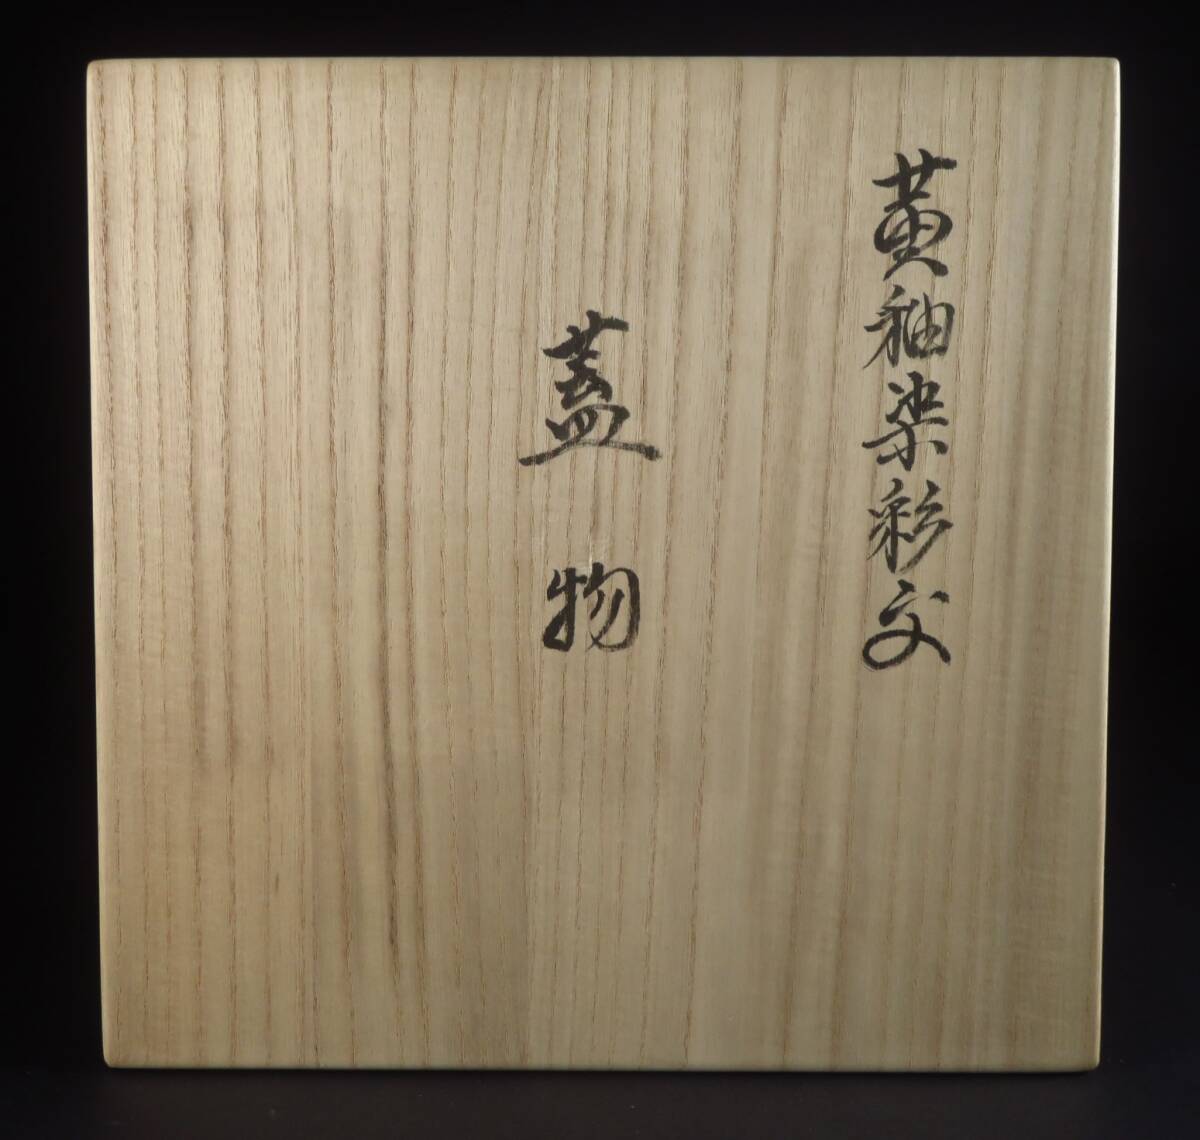 黄釉染彩文
蓋物